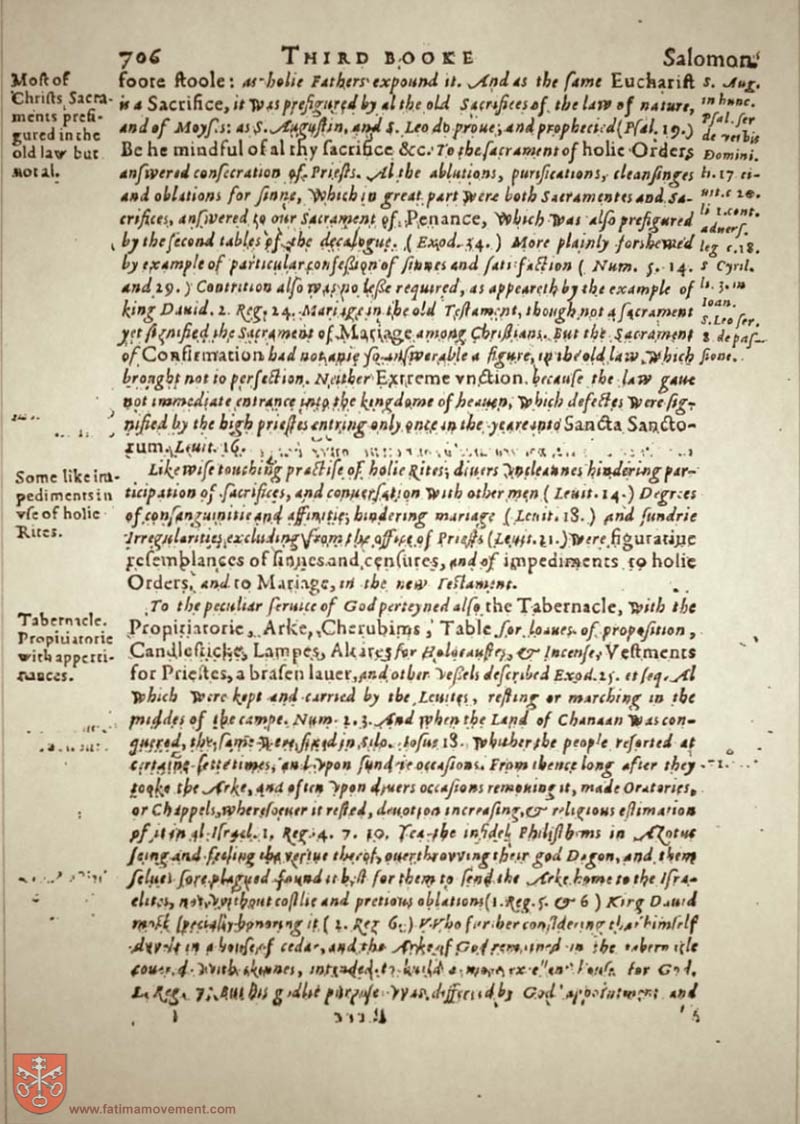 706 THIRD BOOKE Salomon.
Most of
Christs Sacra-
ments prefi-
gured in the
old law but
not al.
foote stoole: as holie Fathers expound it. And as the same Eucharist
is a Sacrifice, it was prefigured by al the old Sacrifices of the law of nature,
and of Moyses: as S. Augustin, and S. Leo do proue; and prophected (Psal. 19.)
Be he mindful of al thy sacrifice &c. To the sacrament of holie Orders
answered consecration of Priests. Al the ablutions, purifications, cleansinges
and oblations for sinne, Which in great part Were both Sacramentes and Sa-
crifices, answered to our Sacrament of Penance, Which Was also prefigured
by the second tables of the decalogue. (Exod. 34.) More plainly forshewed
by example of particular confession of sinnes and satisfaction (Num. 5. 14.
and 29.) Contrition also was no lesse required, as appeareth by the example of
king Dauid. 2. Reg. 24. Mariage in the old Testament, though not a sacrament
yet signified the Sacrament of Mariage among Christians. But the Sacrament
of Confirmation had not anie so answerable a figure, in the old law, Which
brought not to perfection. Neither Extreme vnction. because the law gaue
not immediate entrance into the kingdome of heauen, Which defectes Were sig-
nified by the high priestes entring only once in the yeare into Sancta Sancto-
rum. Leuit. 16.
S. Aug.
in hunc.
Psal. ser
de verbis
Domini.
li. 17 ci-
uit. c 20.
li 1. cont.
aduers.
leg c. 18.
S Cyril.
li. 3. in
Ioan.
S. Leo ser.
8 de pas-
sione.
Some like im-
pediments in
vse of holie
Rites.
Likewise touching practise of holie Rites; diuers vncleannes hindering par-
ticipation of sacrifices, and conuersation with other men (Leuit. 14.) Degrees
of consanguinitie and affinitie; hindering mariage (Leuit. 18.) and sundrie
Irregularities excluding from the office of Priests (Leuit. 21.) Were figuratiue
resemblances of sinnes and censures, and of impediments to holie
Orders, and to Mariage, in the new Testament.
Tabernacle.
Propitiatorie
with apperti-
nances.
To the peculiar seruice of God perteyned also the Tabernacle, With the
Propitiatorie, Arke, Cherubims, Table for loaues of proposition,
Candlesticke, Lampes, Altares for Holocaustes, & Incense, Vestments
for Priestes, a brasen lauer, and other vessels described Exod. 25. et seq. Al
Which Were kept and carried by the Leuites, resting or marching in the
middes of the campe. Num. 2. 3. And when the Land of Chanaan Was con-
quered, the same Were fixed in Silo. Iosue 18. Whither the people resorted at
certaine sette times, and vpon sundrie occasions. From thence long after they
tooke the Arke, and often vpon diuers occasions remouing it, made Oratories,
or Chappels, wheresoeuer it rested, deuotion increasing, & religious estimation
of it in al Israel. 1. Reg. 4. 7. 10. Yea the infidel Philisthims in Azotus
seing and feeling the vertue therof, ouerthrowing their god Dagon, and them
selues sore plagued found it best for them to send the Arke home to the Isra-
elites, not without costlie and pretious oblations (1. Reg. 5. & 6) King Dauid
most specially honoring it (2. Reg 6.) VVho further considering that himself
dwelt in a house of cedar, and the Arke of God remained in the tabernacle
couered With skinnes, intended to build a more excellent house for God.
2. Reg. 7. But his godlie purpose Was differred by Gods appointment and
www.fatimamovement.com